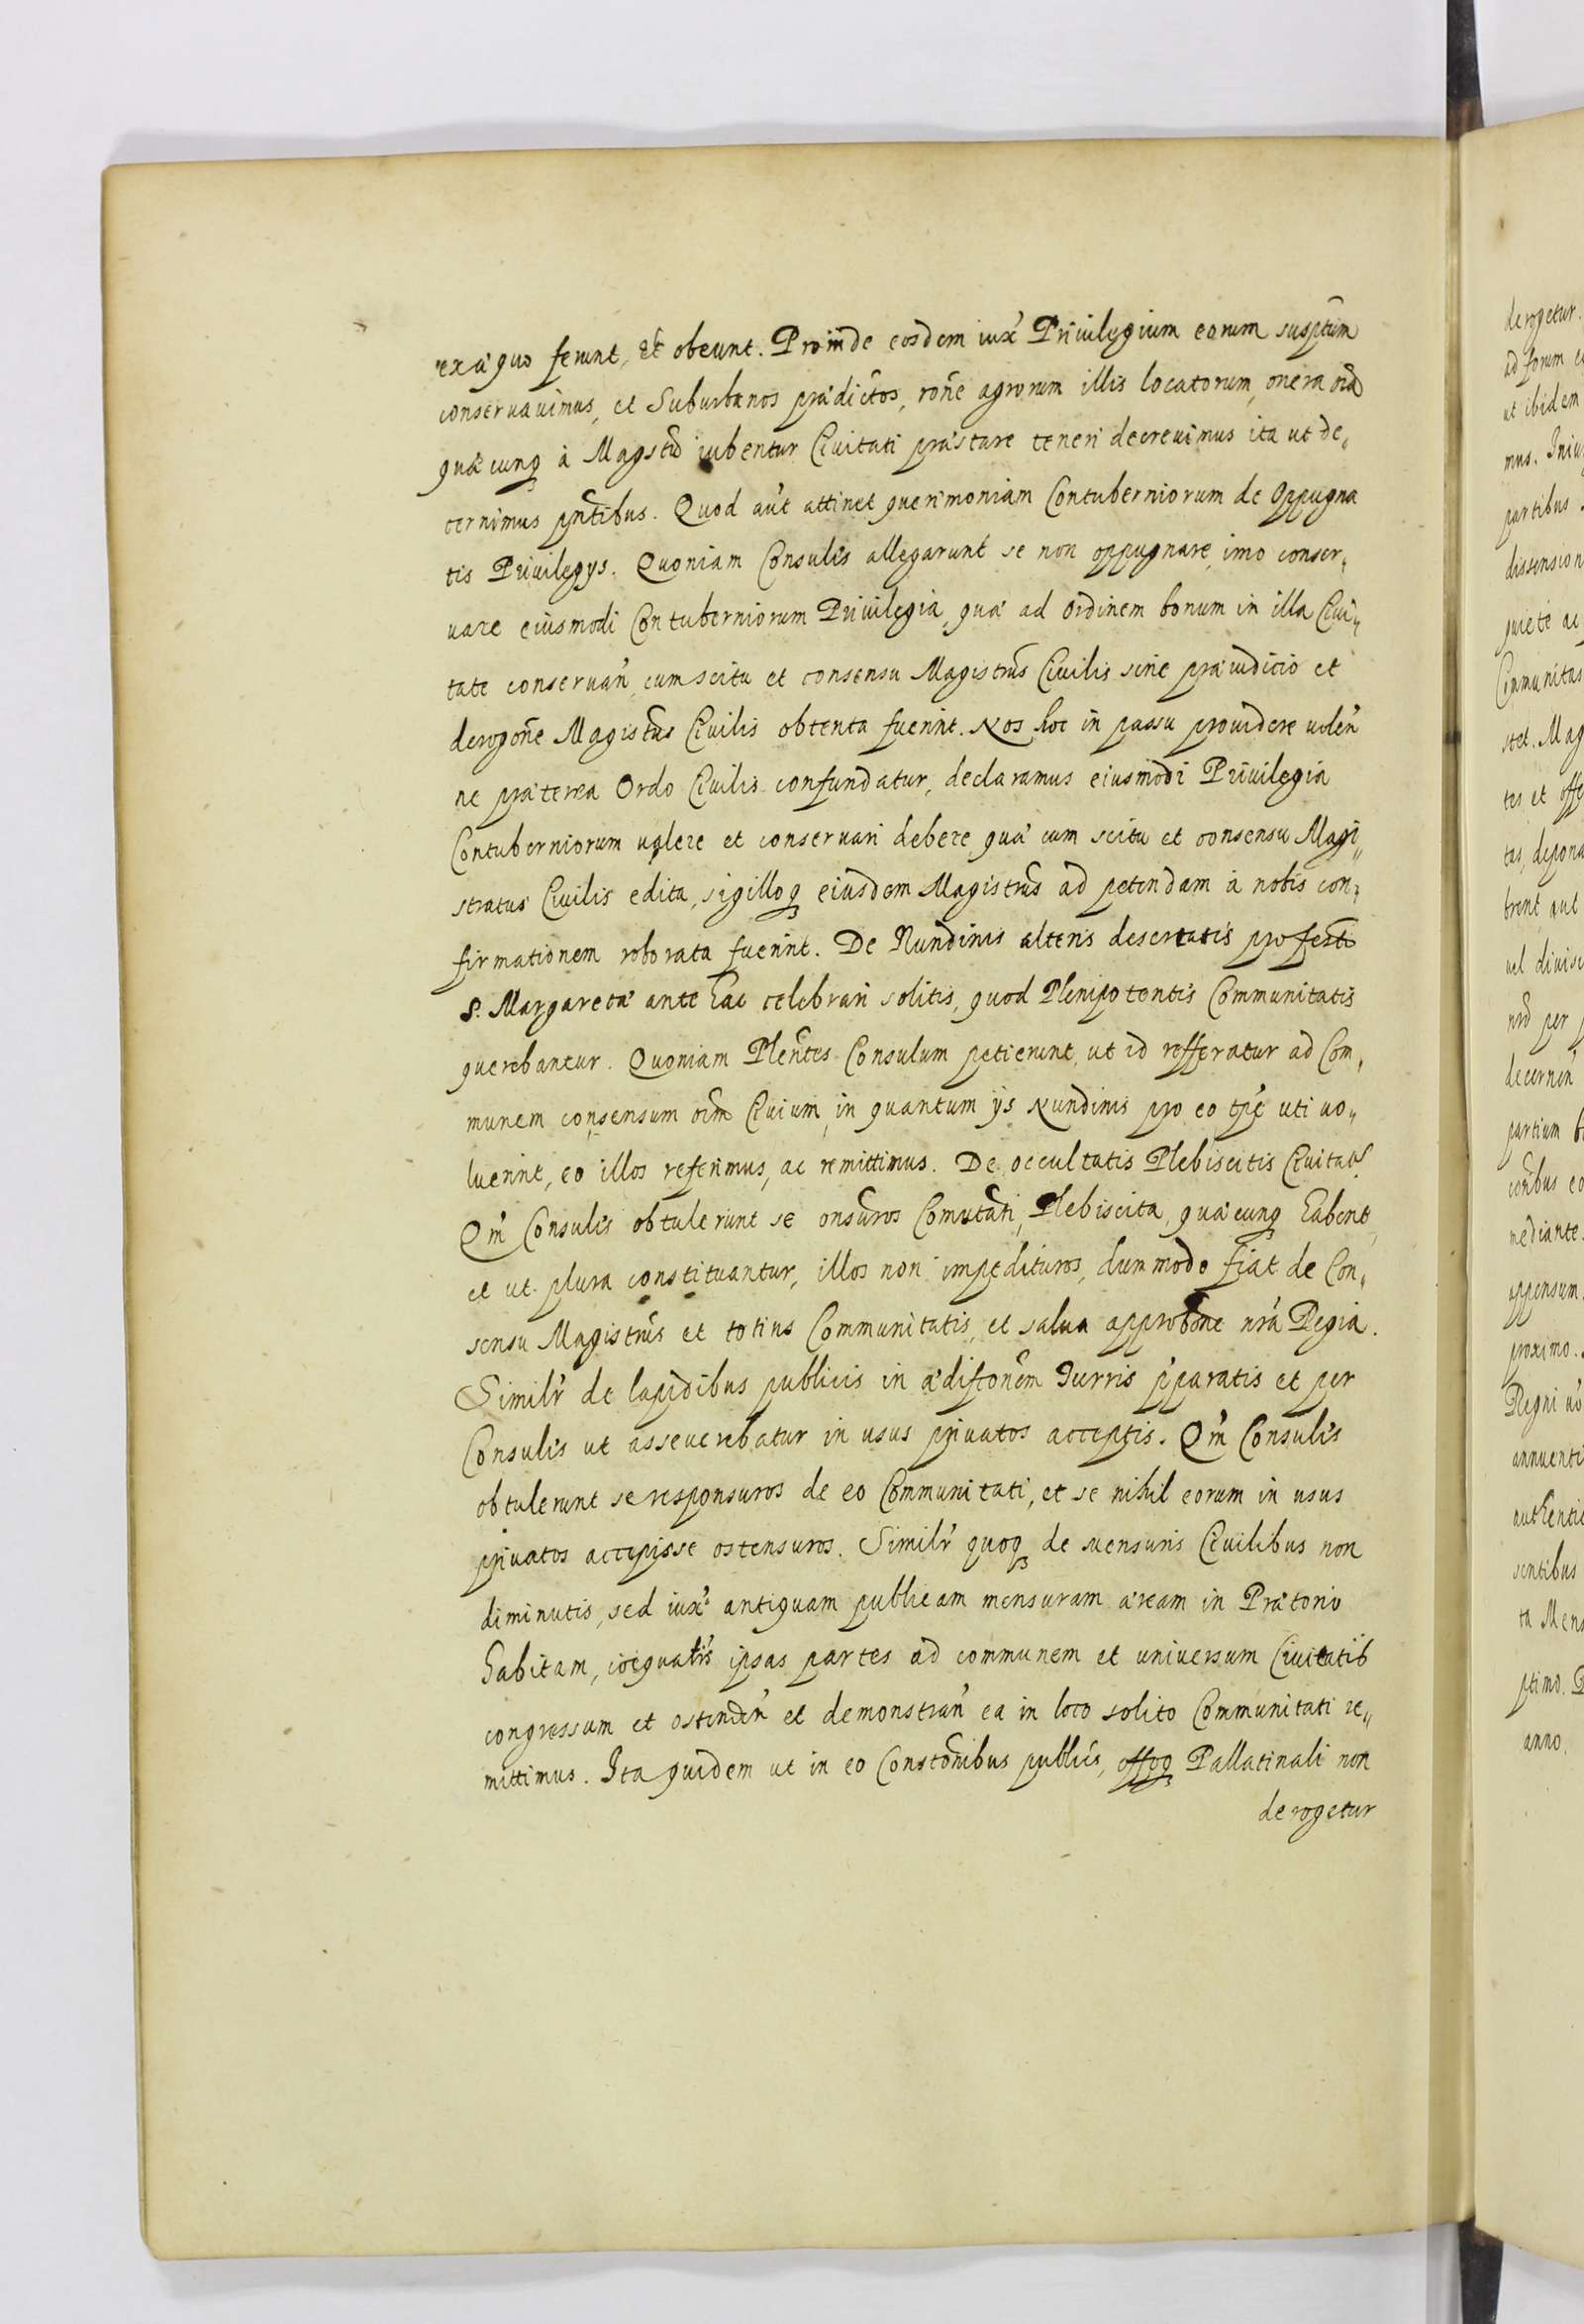 exæquo ferunt, et obeunt. Proinde eosdem iux̃ Priuilegium eorum susptum̃
conseruauimus, et Suburbanos prædictos, rõne agrorum illis locatorum, onera oiã
quæcunq à Magstũ iubentur Ciuitati præstare teneri decreuimus ita ut de„
cernimus pñtibus. Quod aũt attinet querimoniam Contuberniorum de Oppugna
tis Priuilegys. Quoniam Consules allegarunt se non oppugnare, imo conser„
uare eiusmodi Contuberniorum Priuilegia, quæ ad ordinem bonum in illa Ciui„
tate conseruañ, cum scitu et consensu Magistrũs Ciuilis sine præiudicio et
derogõne Magistrũs Ciuilis obtenta fuerint. Nos hoc in passu prouidere uoleñ
ne præterea Ordo Ciuilis confundatur, declaramus eiusmodi Priuilegia
Contuberniorum ualere et conseruari debere, quæ cum scitu et consensu Magi„
stratus Ciuilis edita, sigilloq eiusdem Magistrũs ad petendam à nobis con„
firmationem roborata fuerint. De Nundinis alteris desertatis pro festo
S. Margaretæ ante hac celebrari solitis, quod Plenipotentes Communitatis
querebantur. Quoniam Pleñtes Consulum petierunt, ut id refferatur ad Com„
munem consensum oiũm Ciuium, in quantum ijs Nundinis pro eo tp̃e uti uo„
luerint, eo illos referimus, ac remittimus. De occultatis Plebiscitis Ciuitatis
Qm̃ Consules obtulerunt se onsũros Comutãti, Plebiscita, quæcunq habent,
et ut plura constituantur, illos non impedituros, dummodo fiat de Con„
sensu Magistrũs et totius Communitatis, et salua approbõne nr̃a Regia.
Similr̃ de lapidibus publicis in ædifcõnem Turris p̃paratis et per
Consules ut asseuerebatur in usus priuatos acceptis. Qm̃ Consules
obtulerunt se responsuros de eo Communitati, et se nihil eorum in usus
priuatos accepisse ostensuros. Similr̃ quoq de mensuris Ciuilibus non
diminutis, sed iux̃ antiquam publicam mensuram æream in Prætorio
habitam, coequatis ipsas partes ad communem et uniuersum Ciuitatis
congressum et ostendeñ et demonstrañ ea in loco solito Communitati re„
mittimus. Ita quidem ut in eo Constõnibus publicis, offoq Pallatinali non
derogetur